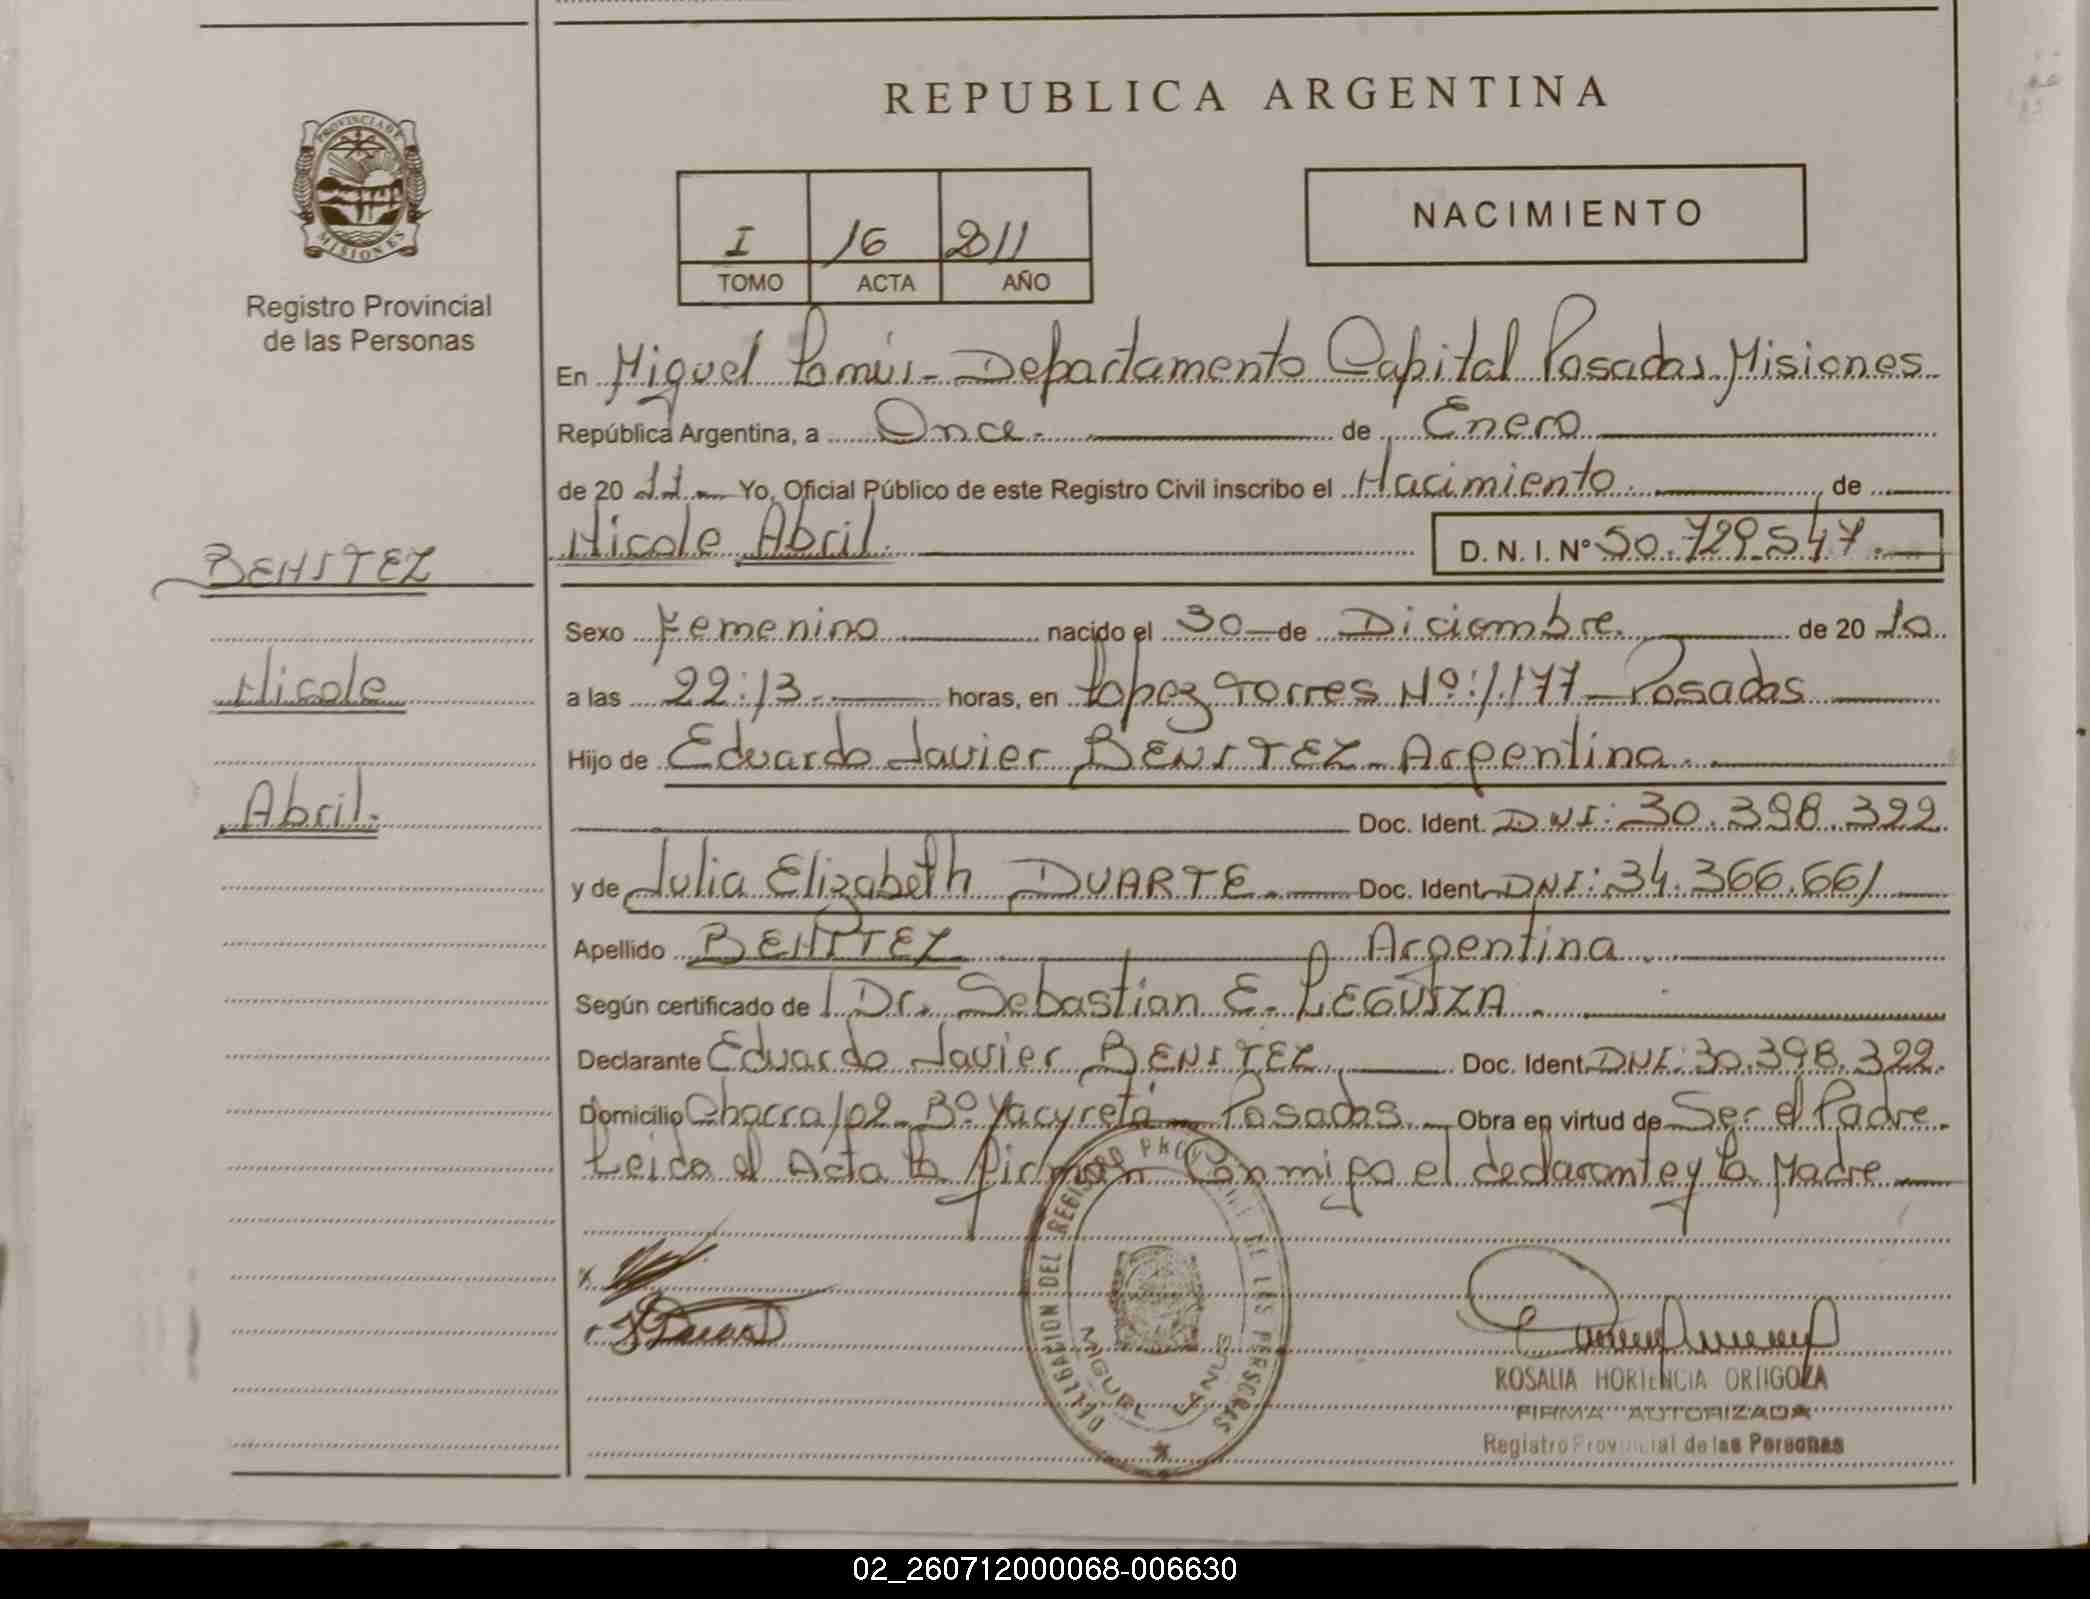 REPUBLICA ARGENTINA
PROVINCIA DE
MISIONES
Registro Provincial
de las Personas
I 16 2011
TOMO ACTA AÑO
NACIMIENTO
En Miguel Lanús - Departamento Capital Posadas Misiones
República Argentina, a Once.- de Enero
de 20 11 Yo, Oficial Público de este Registro Civil inscribo el Nacimiento. de
Nicole Abril. D. N. I. Nº 50.729.547.
BENITEZ
Nicole
Abril.
Sexo Femenino nacido el 30 de Diciembre de 20 10
a las 22:13 horas, en López Torres Nº:1.177 - Posadas
Hijo de Eduardo Javier BENITEZ - Argentina.
Doc. Ident. DNI: 30.398.322.
y de Julia Elizabeth DUARTE. Doc. Ident. DNI: 34.366.661
Apellido BENITEZ Argentina
Según certificado de Dr. Sebastian E. LEGUIZA.
Declarante Eduardo Javier BENITEZ Doc. Ident. DNI: 30.398.322.
Domicilio Chacra 102 - Bº Yacyretá - Posadas. Obra en virtud de Ser el Padre.
Leida el Acta la firman Conmigo el declarante y la Madre
DELEGACION DEL REGISTRO PROVINCIAL DE LAS PERSONAS
MIGUEL LANUS
ROSALIA HORTENCIA ORTIGOZA
FIRMA AUTORIZADA
Registro Provincial de las Personas
02_260712000068-006630